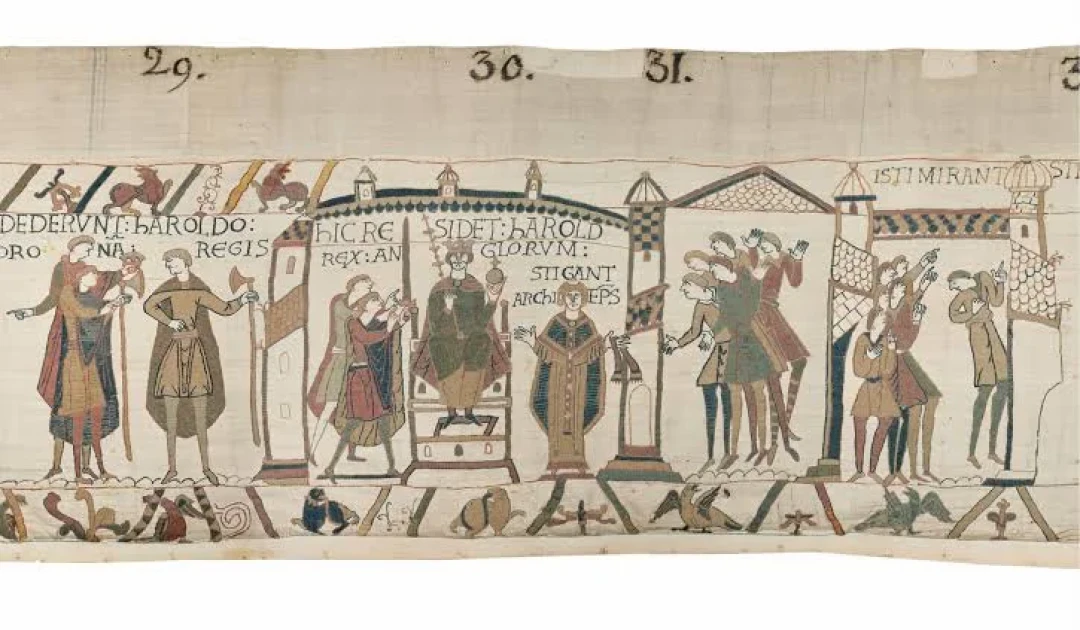 29. 30. 31.
DEDERVNT : hAROLDO :
ORO NA : REGIS
hIC RE SIDET : hAROLD
REX : AN GLORVM :
STIGANT
ARChI EP̄S
ISTI MIRANT